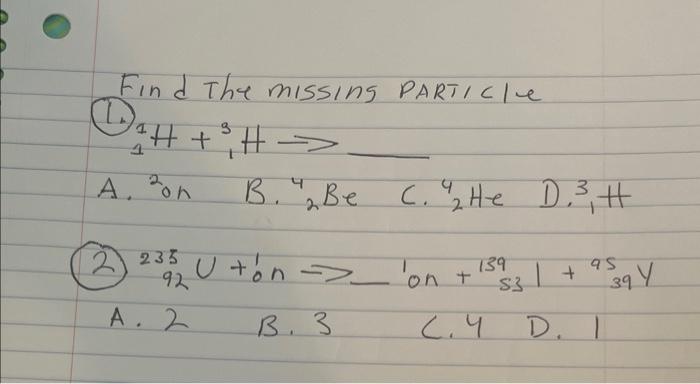 Find The missing PARTICle
1. ¹₁H + ³₁H => ____
A. ²on B. ⁴₂Be C. ⁴₂He D. ³₁H
2 ²³⁵₉₂U + ¹₀n => _ ¹on + ¹³⁹₅₃I + ⁹⁵₃₉Y
A. 2 B. 3 C. 4 D. 1